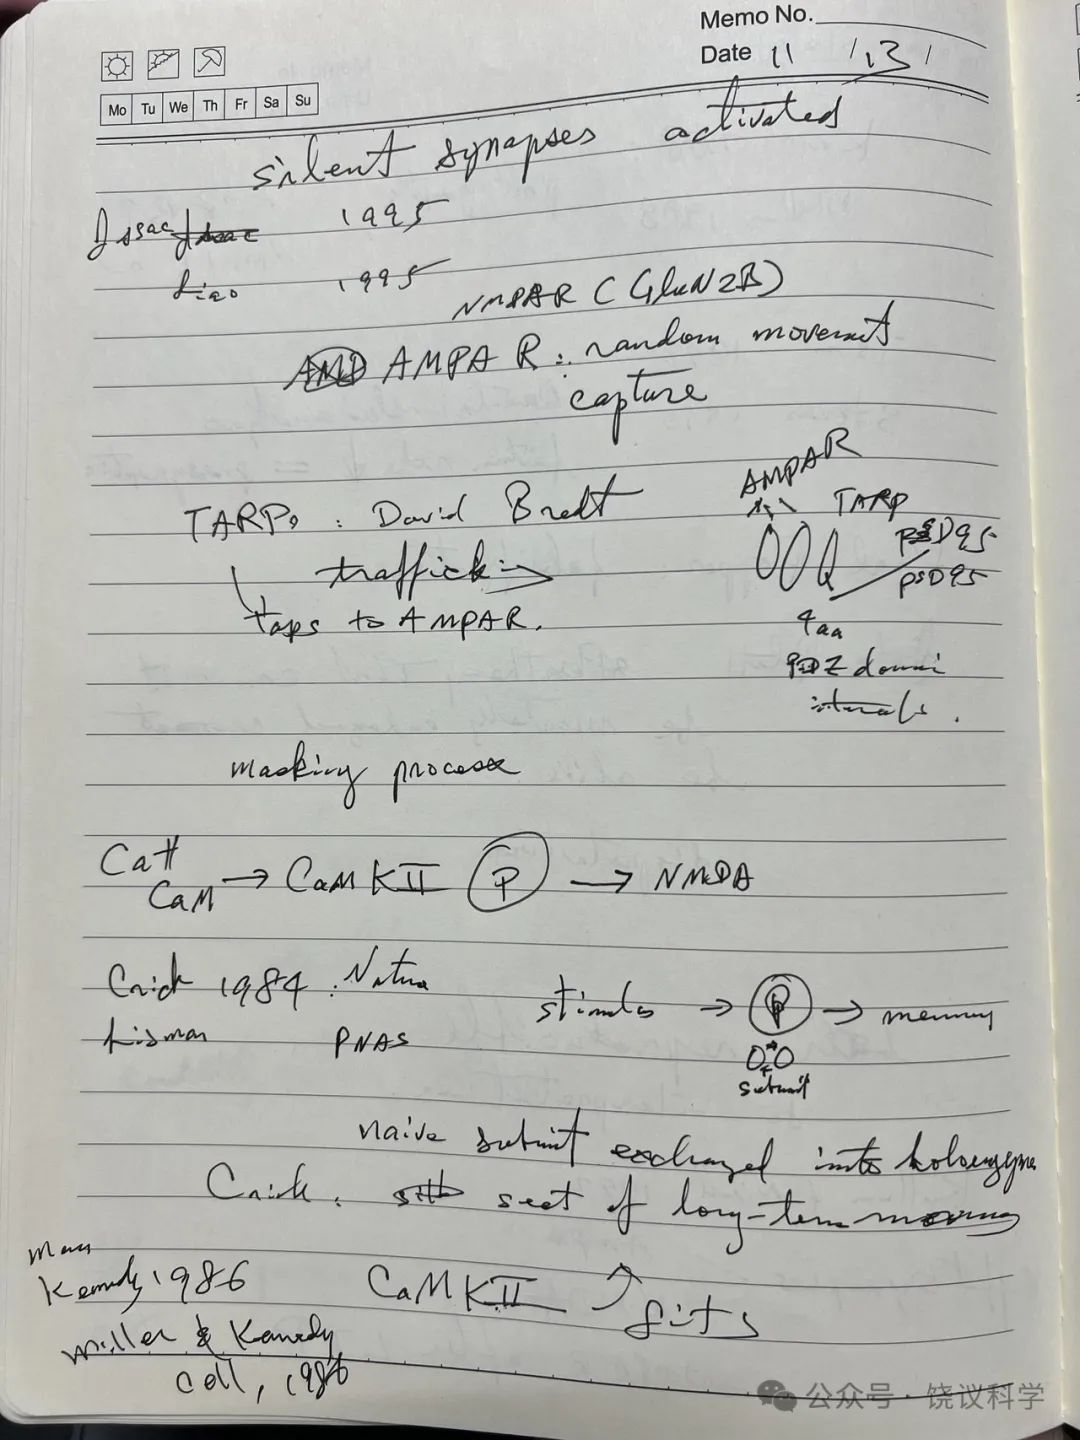 Memo No.
Date 11 / 13 /
Mo Tu We Th Fr Sa Su
silent synapses activated
Issac 1995
Liao 1995
NMPAR (GluN2B)
AMPA R : random movement
capture
AMPAR
TARPs : David Bredt
TARP
PSD95
trafficking
PSD95
taps to AMPAR.
4aa
PDZ domain
masking process
Ca++
CaM → CaMKII P → NMDA
Crick 1984 : Nature
stimulus → P → memory
Lisman PNAS
subunit
naive subunit exchanged into holoenzyme
Crick : seat of long-term memory
Mary
Kennedy, 1986
CaMKII fits
Miller & Kennedy
Cell, 1986
公众号 · 饶议科学